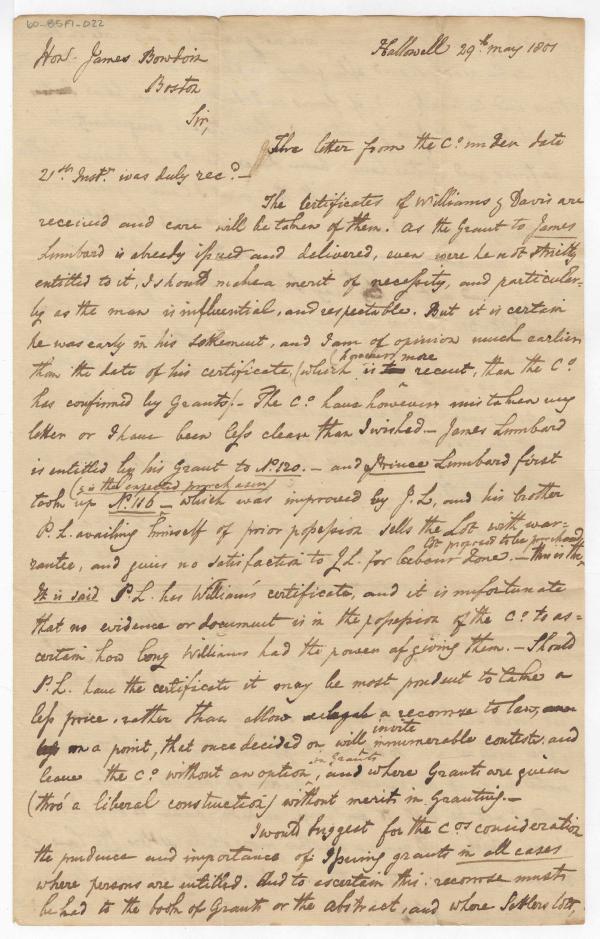 60-85F1-D22
Hallowell 29th may 1801
Honl. James Bowdoin
Boston
Sir,
The letter from the Co. under date
21st Inst. was duly recd.—
The Certificates of Williams & Davis are
received and care will be taken of them. As the Grant to James
Lumbard is already issued and delivered, even were he not strictly
entitled to it, I should make a merit of necessity, and particular-
ly as the man is influential, and respectable. But it is certain
he was early in his settlement, and I am of opinion much earlier
than the date of his certificate, (which is however more recent, than the Co.
has confirmed by Grants).— The Co. have however mistaken my
letter or I have been less clear than I wished— James Lumbard
is entitled by his Grant to No. 120.— and Prince Lumbard first
(& is the expected purchaser)
took up No. 116— which was improved by J.L, and his brother
P.L. availing himself of prior possession sells the Lot with war-
rantee, and gives no satisfaction to J.L. for labour done.— this is the
Lot proposed to be purchased
It is said P.L. has William's certificate, and it is unfortunate
that no evidence or document is in the possession of the Co. to as-
certain how long Williams had the power of giving them.— Should
P.L. have the certificate it may be most prudent to take a
less price, rather than allow a recourse to law,
on a point, that once decided on, will invite innumerable contests, and
leave the Co. without an option in grants, and where Grants are given
(thro' a liberal construction) without merit in Granting.—
I would suggest for the Cos consideration
the prudence and importance of issuing grants in all cases
where persons are entitled. And to ascertain this: recourse must
be had to the book of Grants or the abstract, and where Settlers lots,